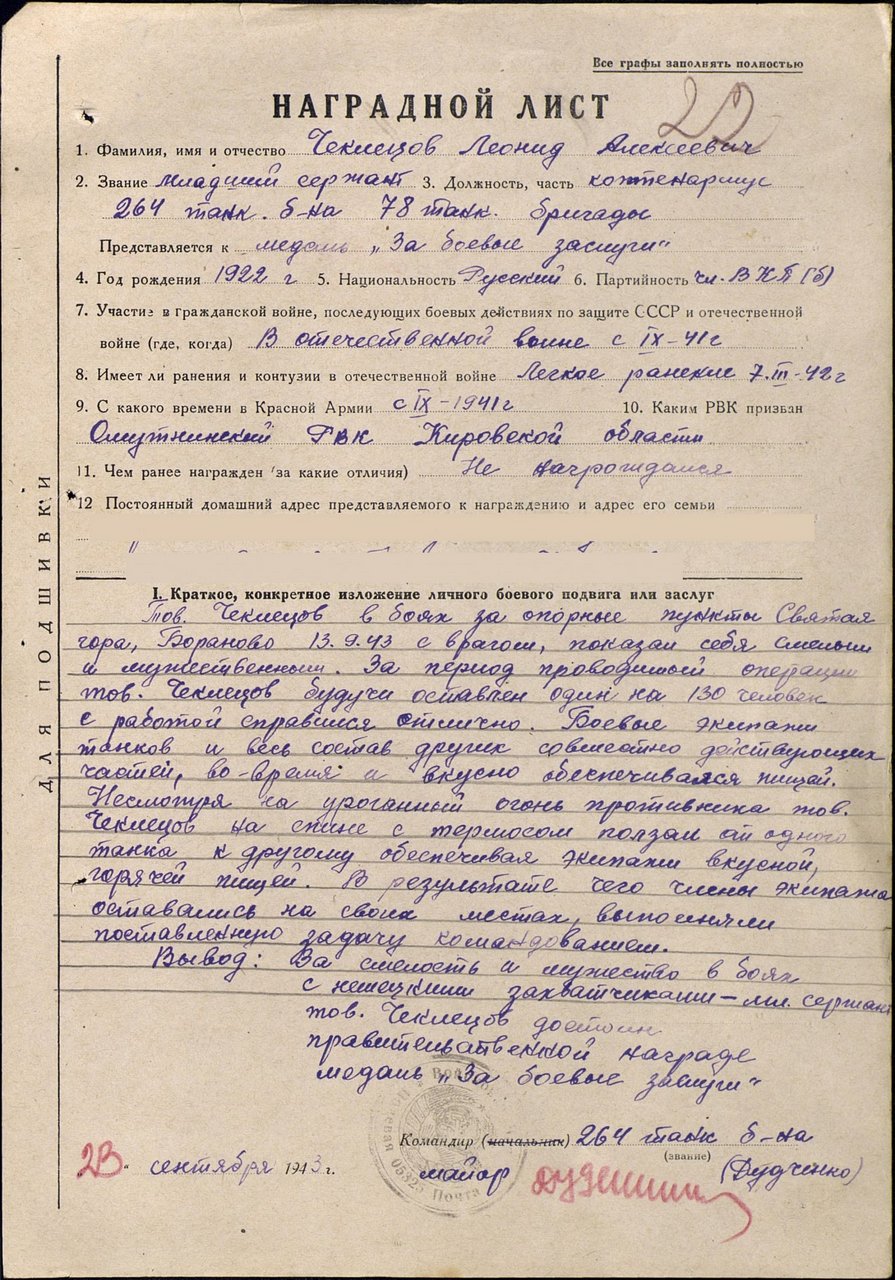 Все графы заполнять полностью
НАГРАДНОЙ ЛИСТ
22
1. Фамилия, имя и отчество Чеклецов Леонид Алексеевич
2. Звание Младший сержант 3. Должность, часть коптенармус
264 танк. б-на 78 танк. бригады
Представляется к медаль „За боевые заслуги“
4. Год рождения 1922 г 5. Национальность Русский 6. Партийность чл. ВКП(б)
7. Участие в гражданской войне, последующих боевых действиях по защите СССР и отечественной
войне (где, когда) В отечественной войне с IX-41г
8. Имеет ли ранения и контузии в отечественной войне Легкое ранение 7.III-42г
9. С какого времени в Красной Армии с IX-1941г 10. Каким РВК призван
Омутнинский РВК Кировской области
11. Чем ранее награжден (за какие отличия) Не награждался
12 Постоянный домашний адрес представляемого к награждению и адрес его семьи
I. Краткое, конкретное изложение личного боевого подвига или заслуг
Тов. Чеклецов в боях за опорные пункты Святая
гора, Бораново 13.9.43 с врагом, показал себя смелым
и мужественным. За период проводимой операции
тов. Чеклецов будучи оставлен один на 130 человек
с работой справился отлично. Боевые экипажи
танков и весь состав других совместно действующих
частей, во-время и вкусно обеспечивался пищей.
Несмотря на ураганный огонь противника тов.
Чеклецов на спине с термосом ползал от одного
танка к другому обеспечивая экипажи вкусной,
горячей пищей. В результате чего члены экипажа
оставались на своих местах, выполняли
поставленную задачу командованием.
Вывод: За смелость и мужество в боях
с немецкими захватчиками – мл. сержант
тов. Чеклецов достоин
правительственной награде
медаль „За боевые заслуги“
Командир (начальник) 264 танк б-на
(звание)
23 „ сентября 1943 г. майор (Дудченко)
Полевая Почта 05325
ДЛЯ ПОДШИВКИ